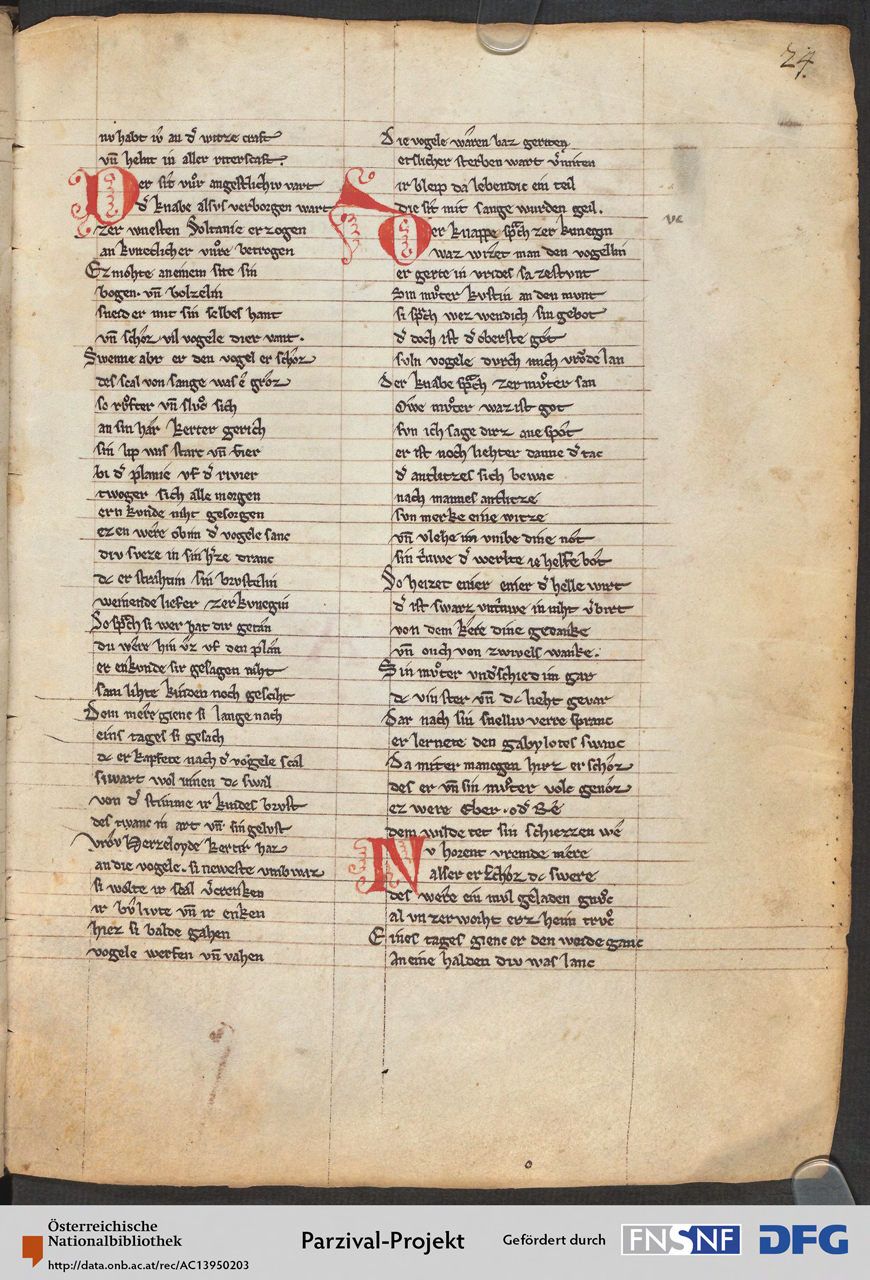 24
nv habt iv an d̾ witze craft
vn̄ helut in aller riterscaft
Der sit vͦr angestlichiv vart
d̾ knabe alsvs verborgen wart
zer wuesten Soltanie erzogen
an kvneclicher vuͦre betrogen
Ez mohte an einem site sin
bogen · vn̄ bolzelin
sneid er mit sin selbes hant
vn̄ schoz vil vogele die er vant ·
Swenne abr er den vogel er schoz
des scal von sange was ê groz
so rvͦfter vn̄ slvͦc sich
an sin hâr kerter gerich
sin lip was starc vn̄ fier
bi d̾ planie vf d̾ rivier
twoger sich alle morgen
ern kvnde niht gesorgen
ez en wêre obim d̾ vogele sanc
div svͤze in sin h̾ze dranc
dc er strahtim sin brvstelin
weinende liefer zer kvnegin
So sprach si wer hat dir getân
du wêre hin vͦz vf den plân
er enkunde sir gesagen niht
sam lihte kinden noch gesciht
Dem mêre gienc si lange nach
eins tages si gesach
dc er kapfete nach d̾ vogele scal
si wart wol innen dc swal
von d̾ stimme ir kindes brvst
des twanc in art vn̄ sin gelvst
vroͮ Herzeloyde kertir haz
an die vogele · si neweste vmb waz
si wolte ir scal v̾crenken
ir bvͦlivte vn̄ ir enken
hiez si balde gâhen
vogele werfen vn̄ vahen
Die vogele wâren baz geriten
etslicher sterben wart v̾miten
ir bleip da lebendic ein teil
die sit mit sange wurden geil .
Der knappe sprach zer kunegin
waz wizet man den vogellin
er gerte in vrides sa zestunt
Sin mvͦter kvstin an den mvnt
si sprach wez wendich sin gebot
d̾ doch ist d̾ oberste got
svln vogele dvrch mich vroͤde lan
Der knabe sprach zer mvͦter san
Owe mvͦter waz ist got
svn ich sage dirz ane spot
er ist noch liehter danne d̾ tac
d̾ antlitzes sich bewac
nach mannes antlitze
svn merke eine witze
vn̄ vlehe im vmbe dine not
sin triwe d̾ werlte ie helfe bot
So heizet einer d̾ helle wirt
d̾ ist swarz vntriwe in niht v̾birt
von dem kêre dine gedanke
vn̄ ouch von zwivels wanke .
Sin mvͦter vnd̾schied im gar
dc vinster vn̄ dc lieht gevar
Dar nach sin snelliv verre spranc
er lernete den gabylotes swanc
Da miter manegen hirz er schoz
des er vn̄ sin mvͦter volc genoz
ez were Eber · od̾ Rê
dem wilde tet sin schiezzen wê
Nv hoͤrent vremde mêre
alser erschoz dc swere
des wêre ein mvl geladen gnvͦc
al vn zerworht erz heim trvͦc
Eines tages gienc er den weide ganc
An eine halden div was lanc
Österreichische
Nationalbibliothek
http://data.onb.ac.at/rec/AC13950203
Parzival-Projekt
Gefördert durch
FNSNF
DFG